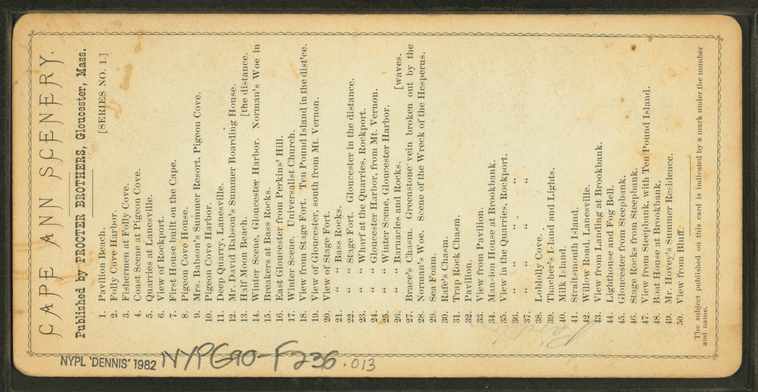 CAPE ANN SCENERY.
Published by PROCTER BROTHERS, Gloucester, Mass.
[SERIES NO. 1.]
1. Pavilion Beach.
2. Folly Cove Harbor.
3. Fishermen at Folly Cove.
4. Coast Scene at Pigeon Cove.
5. Quarries at Lanesville.
6. View of Rockport.
7. First House built on the Cape.
8. Pigeon Cove House.
9. Mrs. Babson's Summer Resort, Pigeon Cove.
10. Pigeon Cove Harbor.
11. Deep Quarry, Lanesville.
12. Mr. David Babson's Summer Boarding House.
13. Half Moon Beach. [the distance.
14. Winter Scene, Gloucester Harbor. Norman's Woe in
15. Breakers at Bass Rocks.
16. East Gloucester from Perkins' Hill.
17. Winter Scene. Universalist Church.
18. View from Stage Fort. Ten Pound Island in the dist'ce.
19. View of Gloucester, south from Mt. Vernon.
20. View of Stage Fort.
21. " Bass Rocks.
22. " Stage Fort. Gloucester in the distance.
23. " Wharf at the Quarries, Rockport.
24. " Gloucester Harbor, from Mt. Vernon.
25. " Winter Scene, Gloucester Harbor.
26. " Barnacles and Rocks. [waves.
27. Brace's Chasm. Greenstone vein broken out by the
28. Norman's Woe. Scene of the Wreck of the Hesperus.
29. Sea Foam.
30. Rafe's Chasm.
31. Trap Rock Chasm.
32. Pavilion.
33. View from Pavilion.
34. Mansion House at Brookbank.
35. View in the Quarries, Rockport.
36. " " " "
37. " " " "
38. Loblolly Cove.
39. Thacher's Island and Lights.
40. Milk Island.
41. Straitsmouth Island.
42. Willow Road, Lanesville.
43. View from Landing at Brookbank.
44. Lighthouse and Fog Bell.
45. Gloucester from Steepbank.
46. Stage Rocks from Steepbank.
47. View from Steepbank, with Ten Pound Island.
48. Boat House at Brookbank.
49. Mr. Hovey's Summer Residence.
50. View from Bluff.
The subject published on this card is indicated by a mark under the number
and name.
NYPL 'DENNIS' 1982 NYPG90-F236 .013